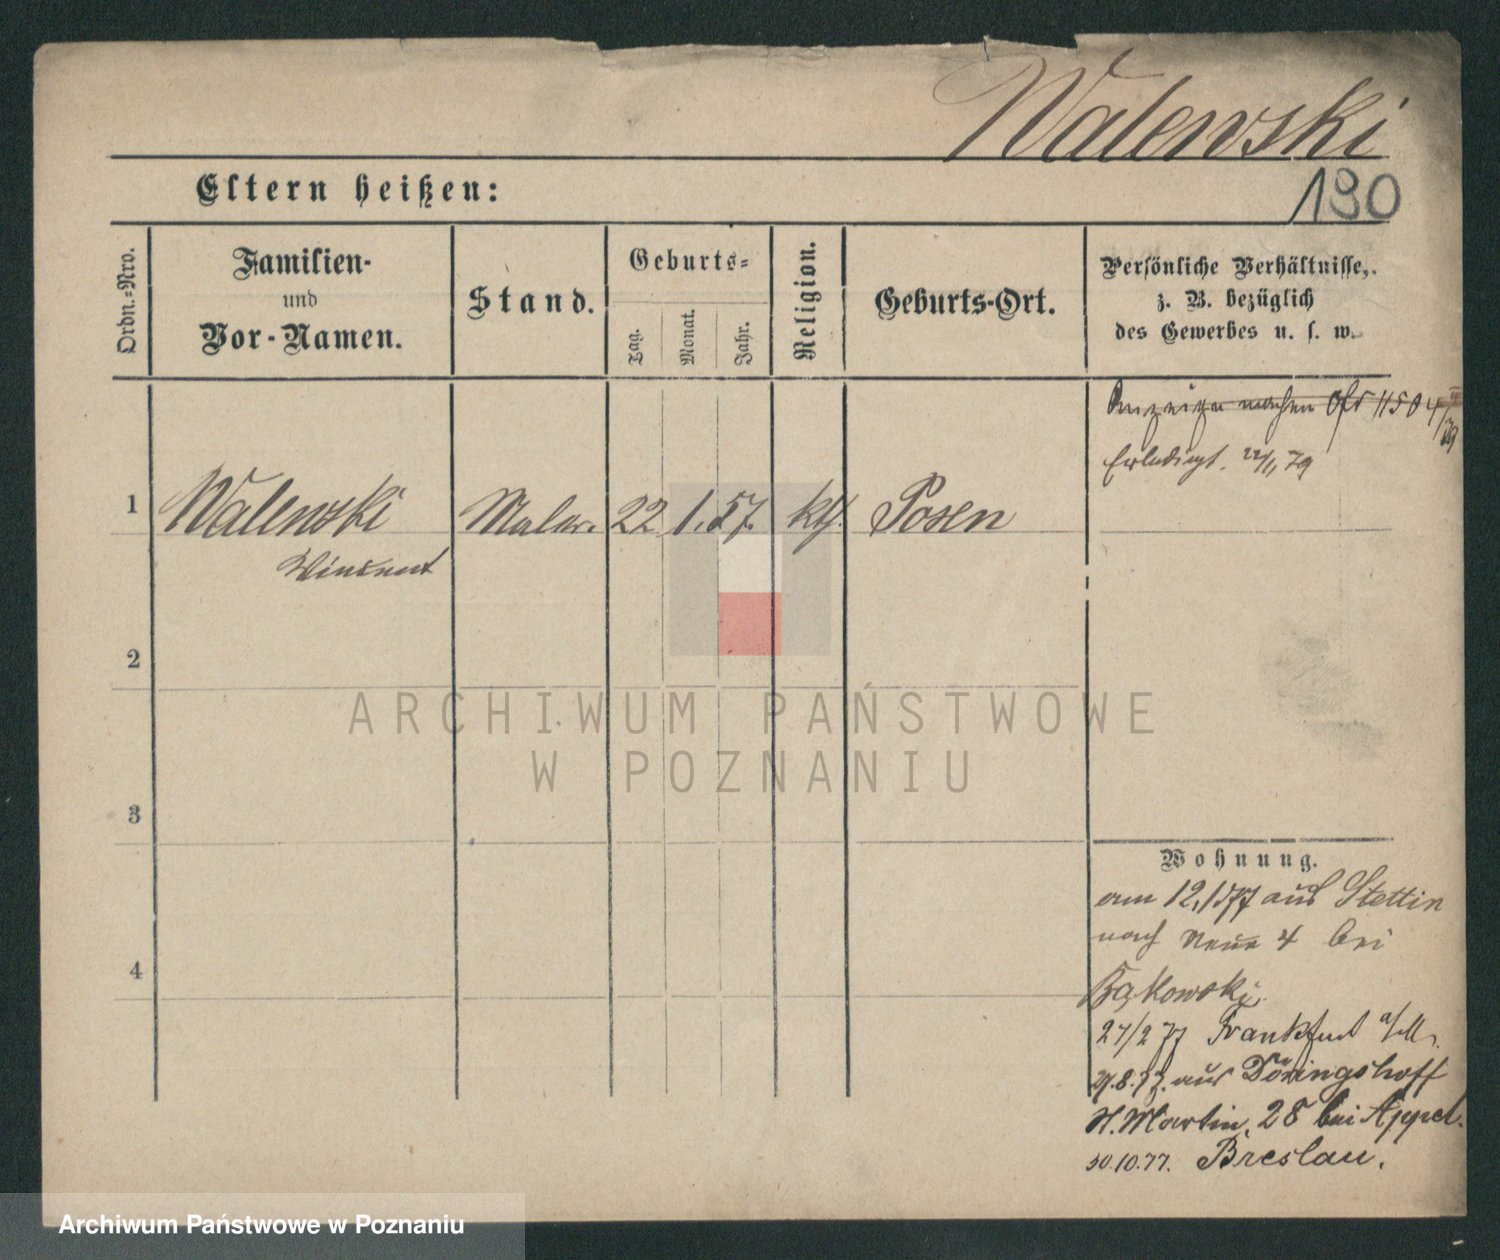 Walewski
190
Eltern heißen:
Ordn.=Nro.
Familien-
und
Vor-Namen.
Stand.
Geburts=
Tag.
Monat.
Jahr.
Religion.
Geburts-Ort.
Persönliche Verhältnisse,
z. B. bezüglich
des Gewerbes u. s. w.
Anzeige machen 1150
Erledigt. 22/1, 79
1 Walewski Maler. 22 1. 57. kth. Posen
Vincent
2
3
4
ARCHIWUM PAŃSTWOWE
W POZNANIU
Wohnung.
am 12,1 77 aus Stettin
nach Neue 4 bei
Bąkowski.
27/2 77 Frankfurt a/M.
8.77. aus Döringshoff
St. Martin, 28 bei Appel.
30.10.77. Breslau.
Archiwum Państwowe w Poznaniu